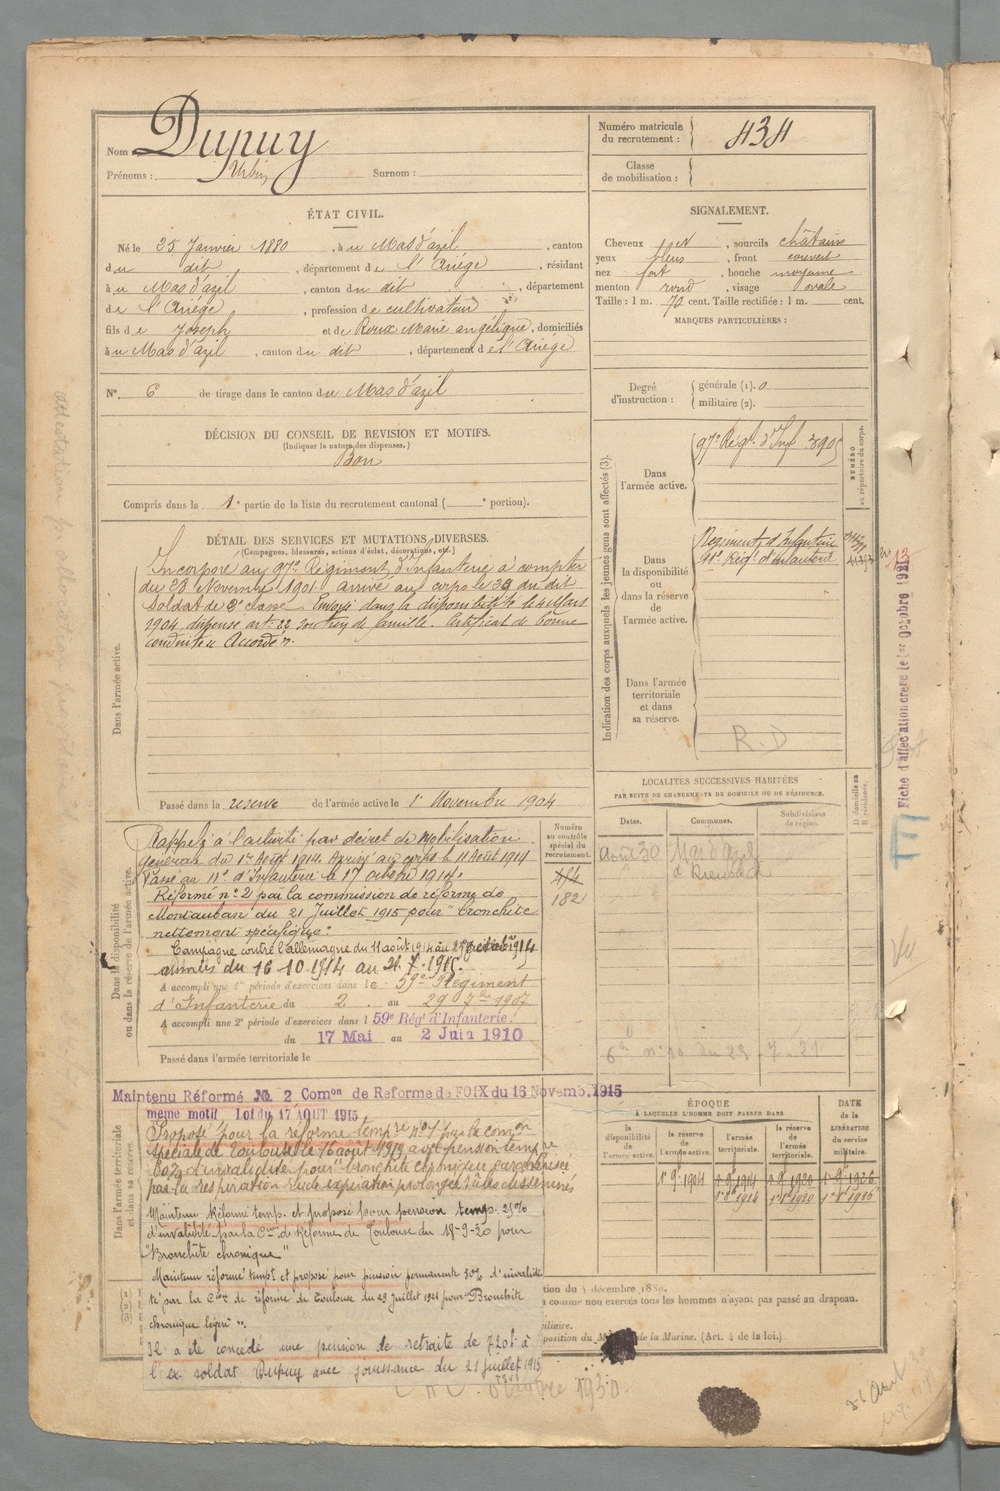 Nom Dupuy
Prénoms : Urbin Surnom :
Numéro matricule du recrutement : 434
Classe de mobilisation :
ÉTAT CIVIL.
Né le 25 Janvier 1880, à u Mas d'azil, canton
du dit, département de l'Ariége, résidant
à u Mas d'azil, canton du dit, département
de l'Ariége, profession de cultivateur
fils de Joseph et de Roux Marie angélique, domiciliés
à u Mas d'azil, canton du dit, département de l'Ariége
N° 6 de tirage dans le canton du Mas d'azil
DÉCISION DU CONSEIL DE REVISION ET MOTIFS.
(Indiquer la nature des dispenses.)
Bon
Compris dans la 1e partie de la liste du recrutement cantonal ( e portion).
SIGNALEMENT.
Cheveux , sourcils châtains
yeux bleus , front couvert
nez fort , bouche moyenne
menton rond , visage ovale
Taille : 1 m. 70 cent. Taille rectifiée : 1 m. cent.
MARQUES PARTICULIÈRES :
Degré d'instruction : générale (1). 0
militaire (2).
DÉTAIL DES SERVICES ET MUTATIONS DIVERSES.
(Campagnes, blessures, actions d'éclat, décorations, etc.)
Dans l'armée active.
Incorporé au 97e Régiment d'Infanterie à compter
du 23 Novembre 1901. arrivé au corps le 29 du dit
Soldat de 2e classe. Envoyé dans la disponibilité le 4 Mars
1904 dispense art: 22 soutien de famille. Certificat de bonne
conduite « Accordé ».
Passé dans la reserve de l'armée active le 1r Novembre 1904
Indication des corps auxquels les jeunes gens sont affectés (3).
NUMÉRO au répertoire du corps.
Dans l'armée active.
97e Régt d'Inf 3905
Dans la disponibilité ou dans la réserve de l'armée active.
Régiment d'Infanterie
11e Régt d'Infanterie
Dans l'armée territoriale et dans sa réserve.
R.D
Fiche d'affectation créée le 1er Octobre 1921
LOCALITÉS SUCCESSIVES HABITÉES
PAR SUITE DE CHANGEMENTS DE DOMICILE OU DE RÉSIDENCE.
Dates. Communes. Subdivisions de région. D domicile ou R résidence.
Août 30 Mas d'azil
Dans la disponibilité ou dans la réserve de l'armée active.
Numéro au contrôle spécial du recrutement.
182
Rappelé à l'activité par décret de Mobilisation
Générale du 1er Août 1914. Arrivé au corps le 11 Août 1914
Passé au 11e d'Infanterie le 17 octobre 1914.
Réformé n° 2 par la commission de réforme de
Montauban du 21 Juillet 1915 pour "bronchite
nettement spécifique"
Campagne contre l'allemagne du 11 août 1914 au 1914
du 16-10-1914 au 21.7.1915.
A accompli une 1re période d'exercices dans le 59e Régiment
d'Infanterie du 2 au 29 7bre 1907
A accompli une 2e période d'exercices dans l 59e Régt d'Infanterie
du 17 Mai au 2 Juin 1910
Passé dans l'armée territoriale le
Dans l'armée territoriale et dans sa réserve.
Maintenu Réformé N° 2 Comon de Reforme de FOIX du 16 Novemb. 1915
meme motif Loi du 17 AOUT 1915
Proposé pour la réforme tempre n° 1 par la comon
spéciale de Toulouse le 16 août 1919 avec pension tempre
d'invalidité pour "bronchite chronique caractérisée
par la respiration rude expiration prolongée râles disséminés
Maintenu Réformé temp. et proposé pour pension temp. 25%
d'invalidité par la Con de Réforme de Toulouse du 15-9-20 pour
"Bronchite chronique"
Maintenu réformé tempt et proposé pour pension permanente 30% d'invalidi
té par la Con de réforme de Toulouse du 29 Juillet 1921 pour "Bronchite
chronique légère".
Il a été concédé une pension de retraite de 720f à
l'ex soldat Dupuy avec jouissance du 21 juillet 1915
ÉPOQUE
À LAQUELLE L'HOMME DOIT PASSER DANS
la disponibilité de l'armée active. la réserve de l'armée active. l'armée territoriale. la réserve de l'armée territoriale. DATE de la LIBÉRATION du service militaire.
1r 9bre 1904 1r 9bre 1914 1r 9bre 1920 1r 9bre 1926
tion du 4 décembre 1889.
a comme non exercés tous les hommes n'ayant pas passé au drapeau.
ciliaire.
position du de la Marine. (Art. 4 de la loi.)
octobre 1930.